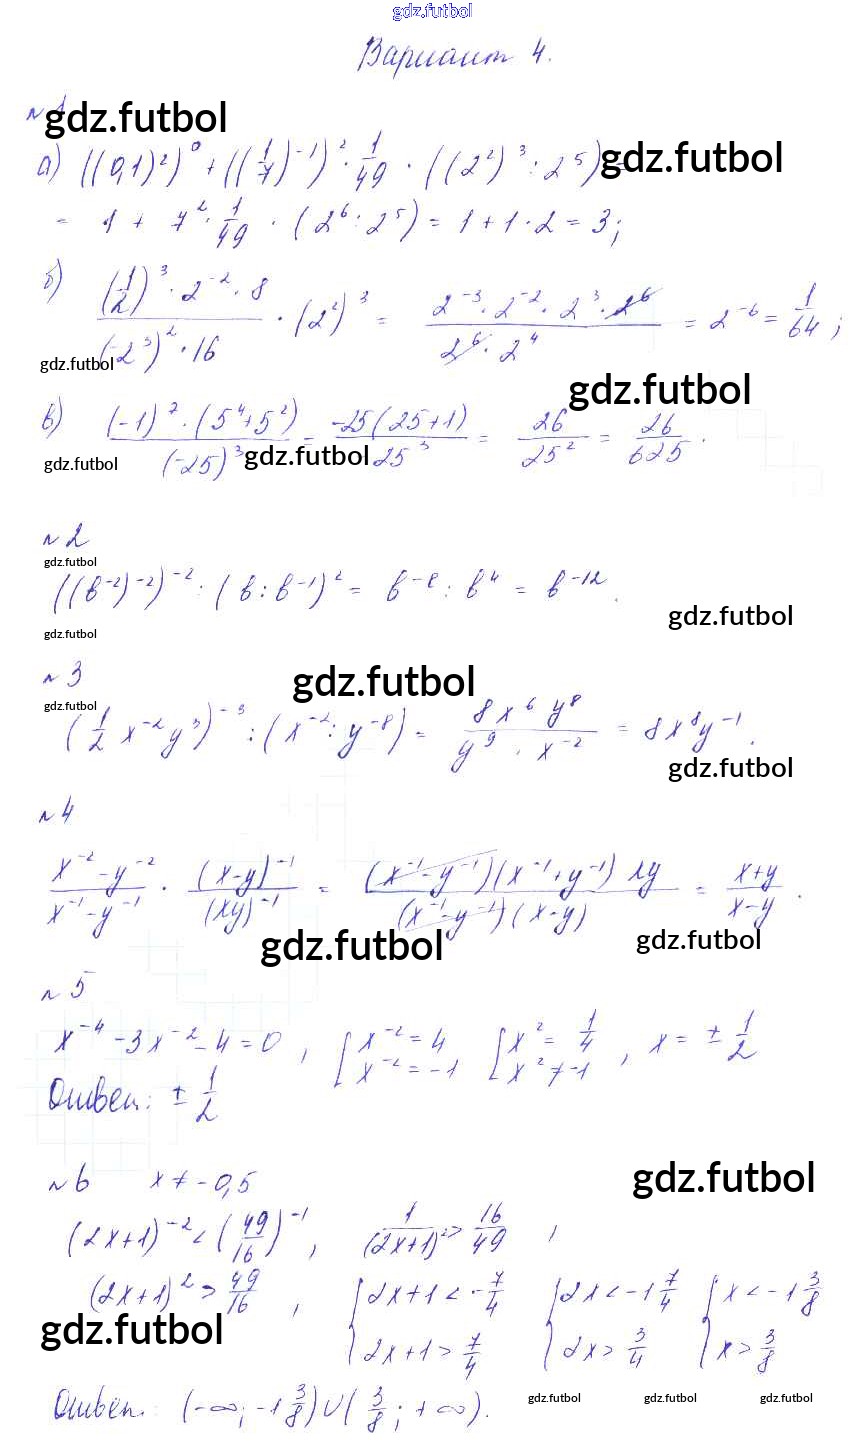 gdz.futbol
Вариант 4.
№1
gdz.futbol
а) ((0,1)²)⁰ + ((1/7)⁻¹)² · 1/49 · ((2²)³ : 2⁵) =
gdz.futbol
= 1 + 7² · 1/49 · (2⁶ : 2⁵) = 1 + 1 · 2 = 3;
б) ((1/2)³ · 2⁻² · 8)/((-2³)² · 16) · (2²)³ = (2⁻³ · 2⁻² · 2³ · 2⁶)/(2⁶ · 2⁴) = 2⁻⁶ = 1/64;
gdz.futbol
gdz.futbol
в) ((-1)⁷ · (5⁴+5²))/((-25)³) = (-25(25+1))/(25³) = 26/25² = 26/625.
gdz.futbol
gdz.futbol
№2
gdz.futbol
((b⁻²)⁻²)⁻² : (b : b⁻¹)² = b⁻⁸ : b⁴ = b⁻¹².
gdz.futbol
gdz.futbol
№3
gdz.futbol
gdz.futbol
(1/2 x⁻²y³)⁻³ : (x⁻² : y⁻⁸) = (8x⁶ y⁸)/(y⁹ · x⁻²) = 8x⁸y⁻¹.
gdz.futbol
№4
(x⁻² - y⁻²)/(x⁻¹ - y⁻¹) · ((x-y)⁻¹)/((xy)⁻¹) = ((x⁻¹-y⁻¹)(x⁻¹+y⁻¹) xy)/((x⁻¹-y⁻¹)(x-y)) = (x+y)/(x-y).
gdz.futbol
gdz.futbol
№5
x⁻⁴ - 3x⁻² - 4 = 0, [x⁻² = 4 [x² = 1/4, x = ± 1/2
x⁻² = -1 x² ≠ -1
Ответ: ± 1/2
№6 x ≠ -0,5
gdz.futbol
(2x+1)⁻² < (49/16)⁻¹, 1/(2x+1)² > 16/49,
(2x+1)² > 49/16, {2x+1 < -7/4 {2x < -1 7/4 {x < -1 3/8
gdz.futbol
2x+1 > 7/4 2x > 3/4 x > 3/8
Ответ: (-∞; -1 3/8) ∪ (3/8; +∞).
gdz.futbol gdz.futbol gdz.futbol